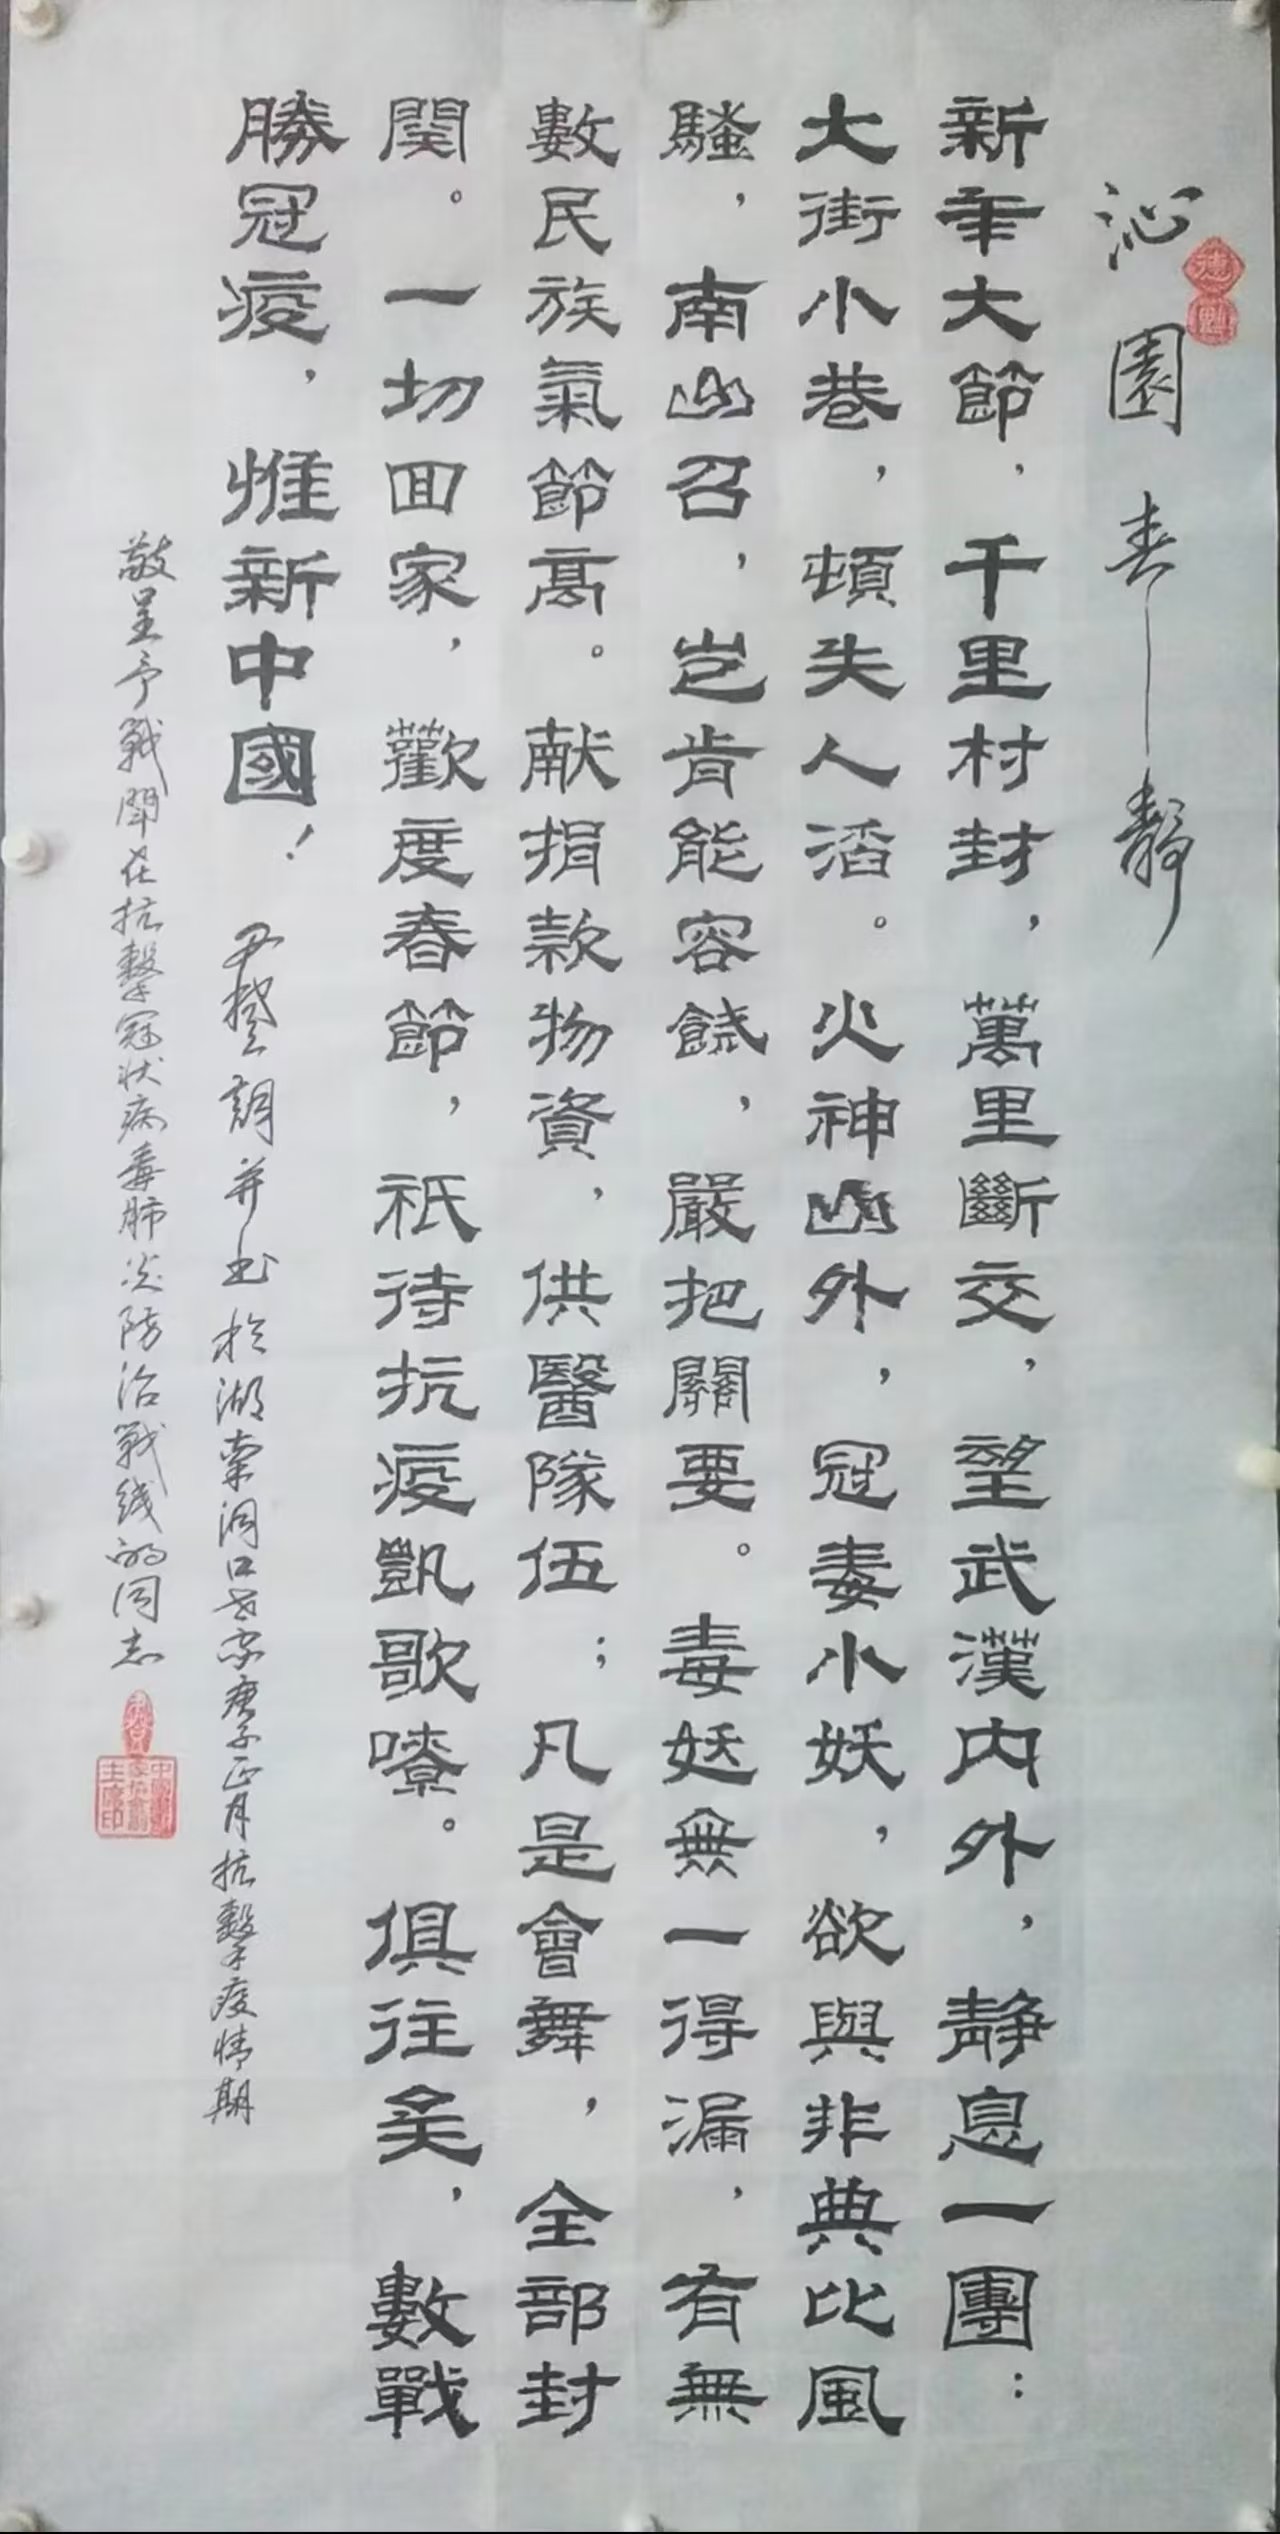 沁園春——靜
新年大節，千里村封，萬里斷交，望武漢内外，静息一團：
大街小巷，頓失人滔。火神山外，冠毒小妖，欲與非典比風
騷，南山召，岂肯能容饒，嚴把關要。毒妖無一得漏，有無
數民族氣節高。献捐款物資，供醫隊伍；凡是會舞，全部封
関。一切回家，歡度春節，祇待抗疫凱歌嘹。俱往矣，數戰
勝冠疫，惟新中國！
尹 詞并书於湖南洞口老家庚子正月抗擊疫情期
敬呈予戰鬥在抗擊冠状病毒肺炎防治戰线的同志